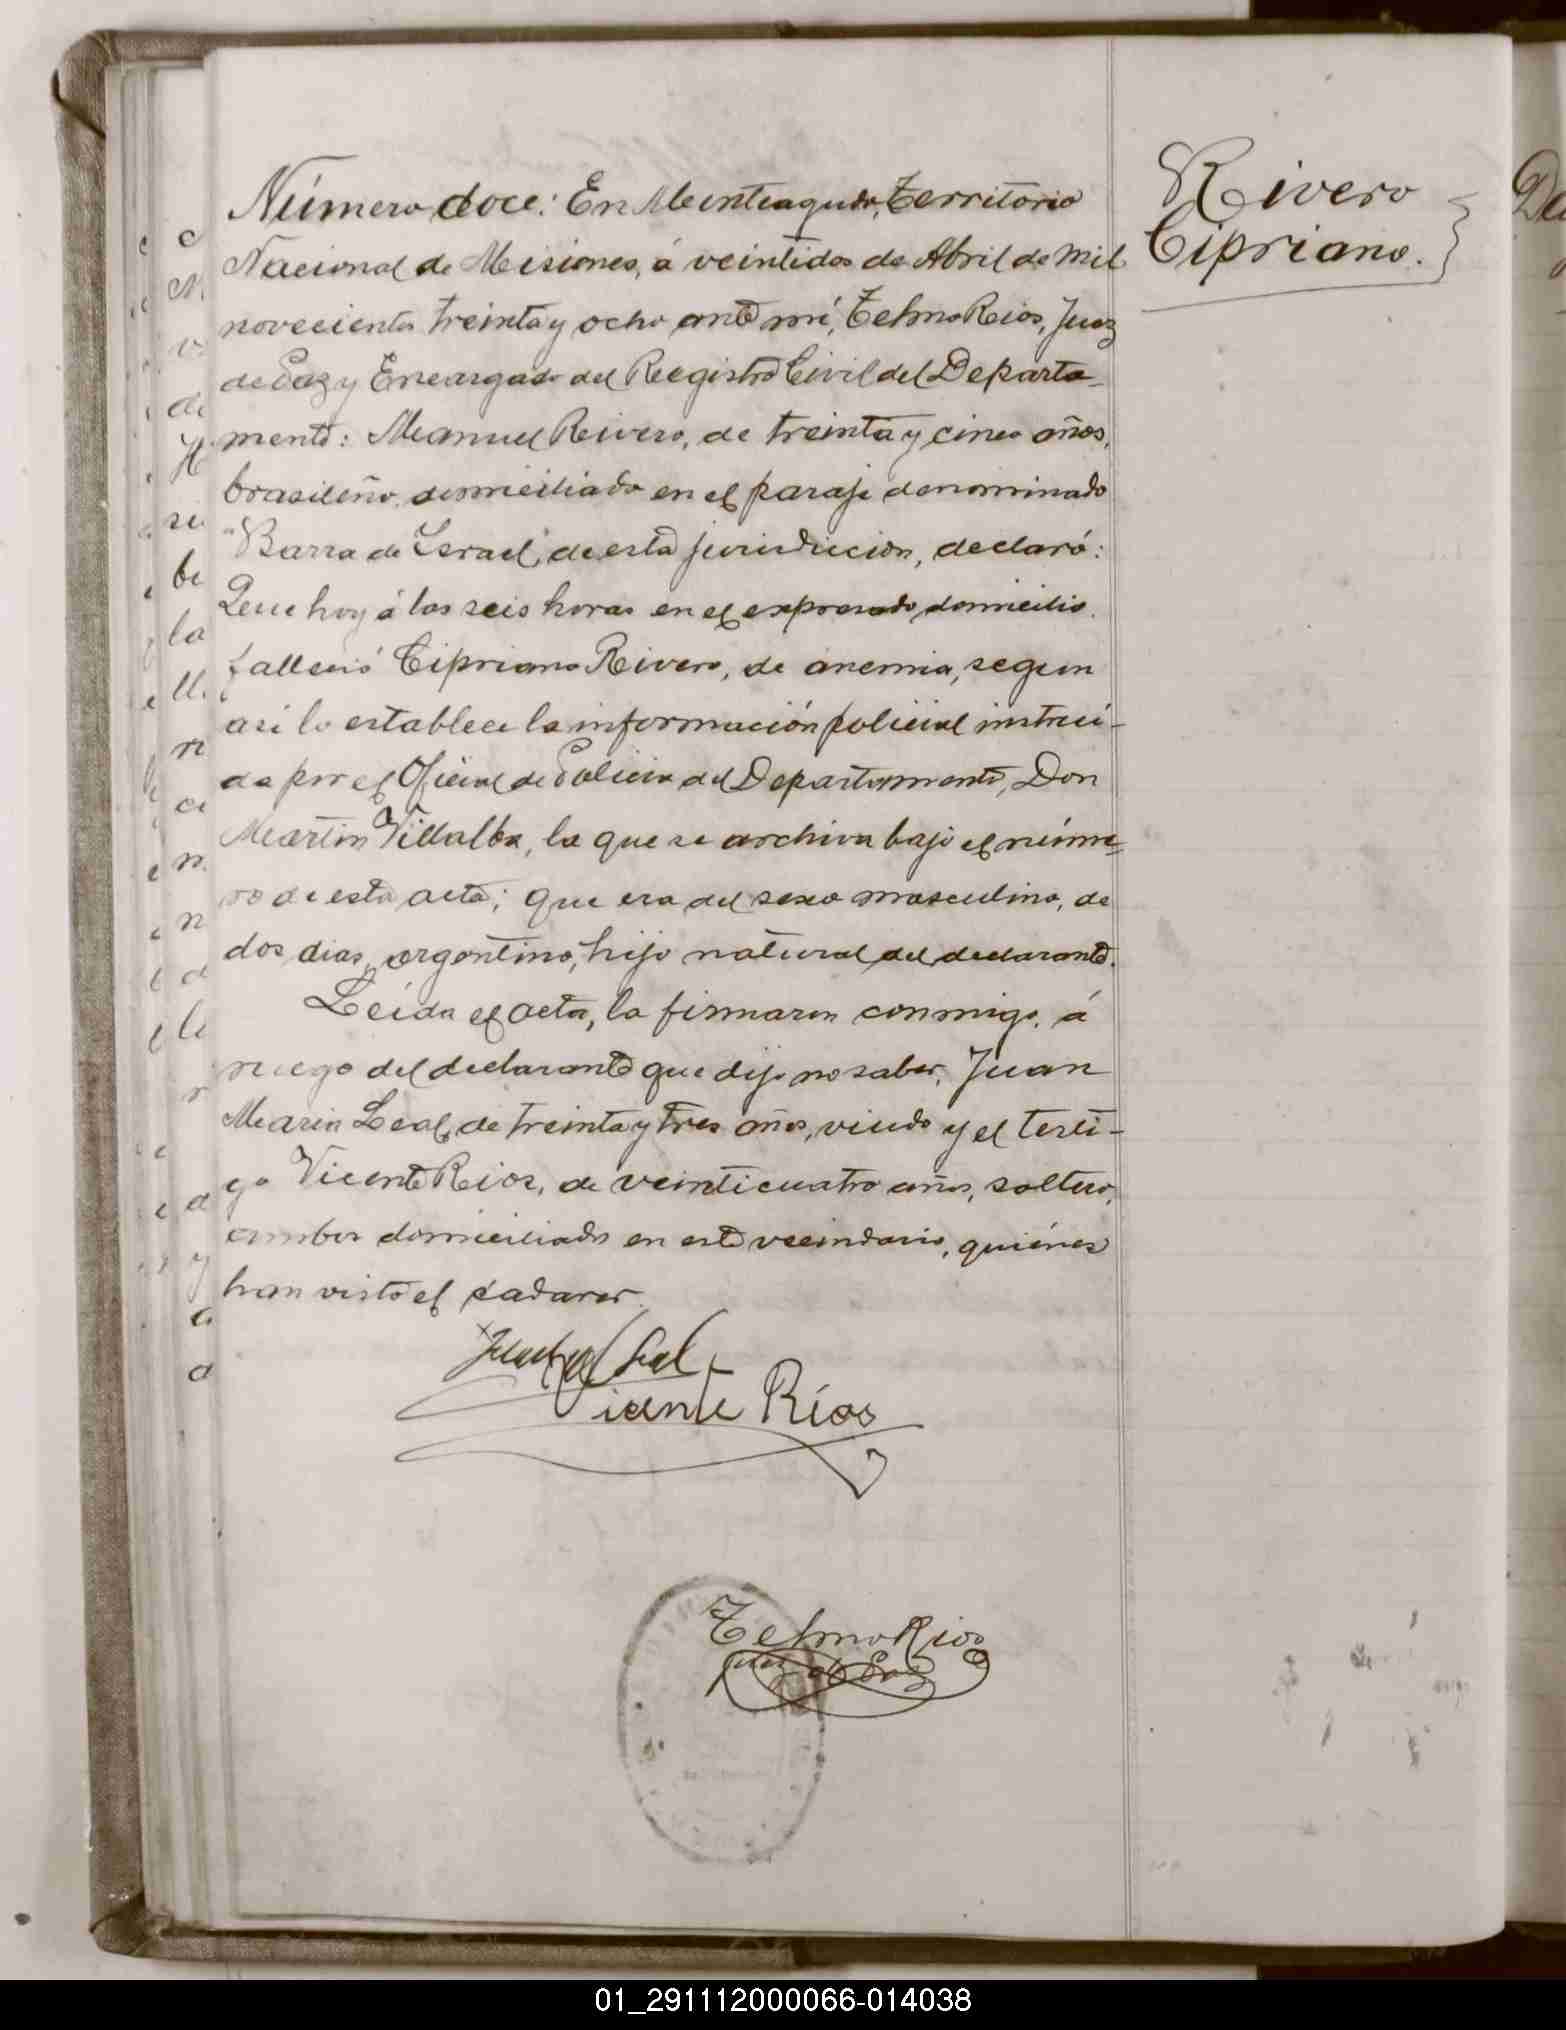 Número doce: En Monteagudo, Territorio
Nacional de Misiones, á veintidos de Abril de mil
novecientos treinta y ocho ante mí, Telmo Rios, Juez
de Paz y Encargado del Registro Civil del Departa-
mento: Manuel Rivero, de treinta y cinco años,
brasileño, domiciliado en el paraje denominado
"Barra de Israel" de esta jurisdiccion, declaró:
Que hoy á las seis horas en el expresado domicilio.
falleció Cipriano Rivero, de anemia, segun
asi lo establece la información policial instrui-
da por el Oficial de Policia del Departamento, Don
Martin Villalba, la que se archiva bajo el núme-
ro de esta acta; que era del sexo masculino, de
dos dias, argentino, hijo natural del declarante.
Leida el acta, la firmaron conmigo, á
ruego del declarante que dijo no saber, Juan
Maria Leal, de treinta y tres años, viudo y el testi-
go Vicente Rios, de veinticuatro años, soltero,
ambos domiciliados en este vecindario, quiénes
han visto el cadaver.
Leal
Vicente Ríos
Telmo Rios
Juez de Paz
Rivero
Cipriano.
01_291112000066-014038